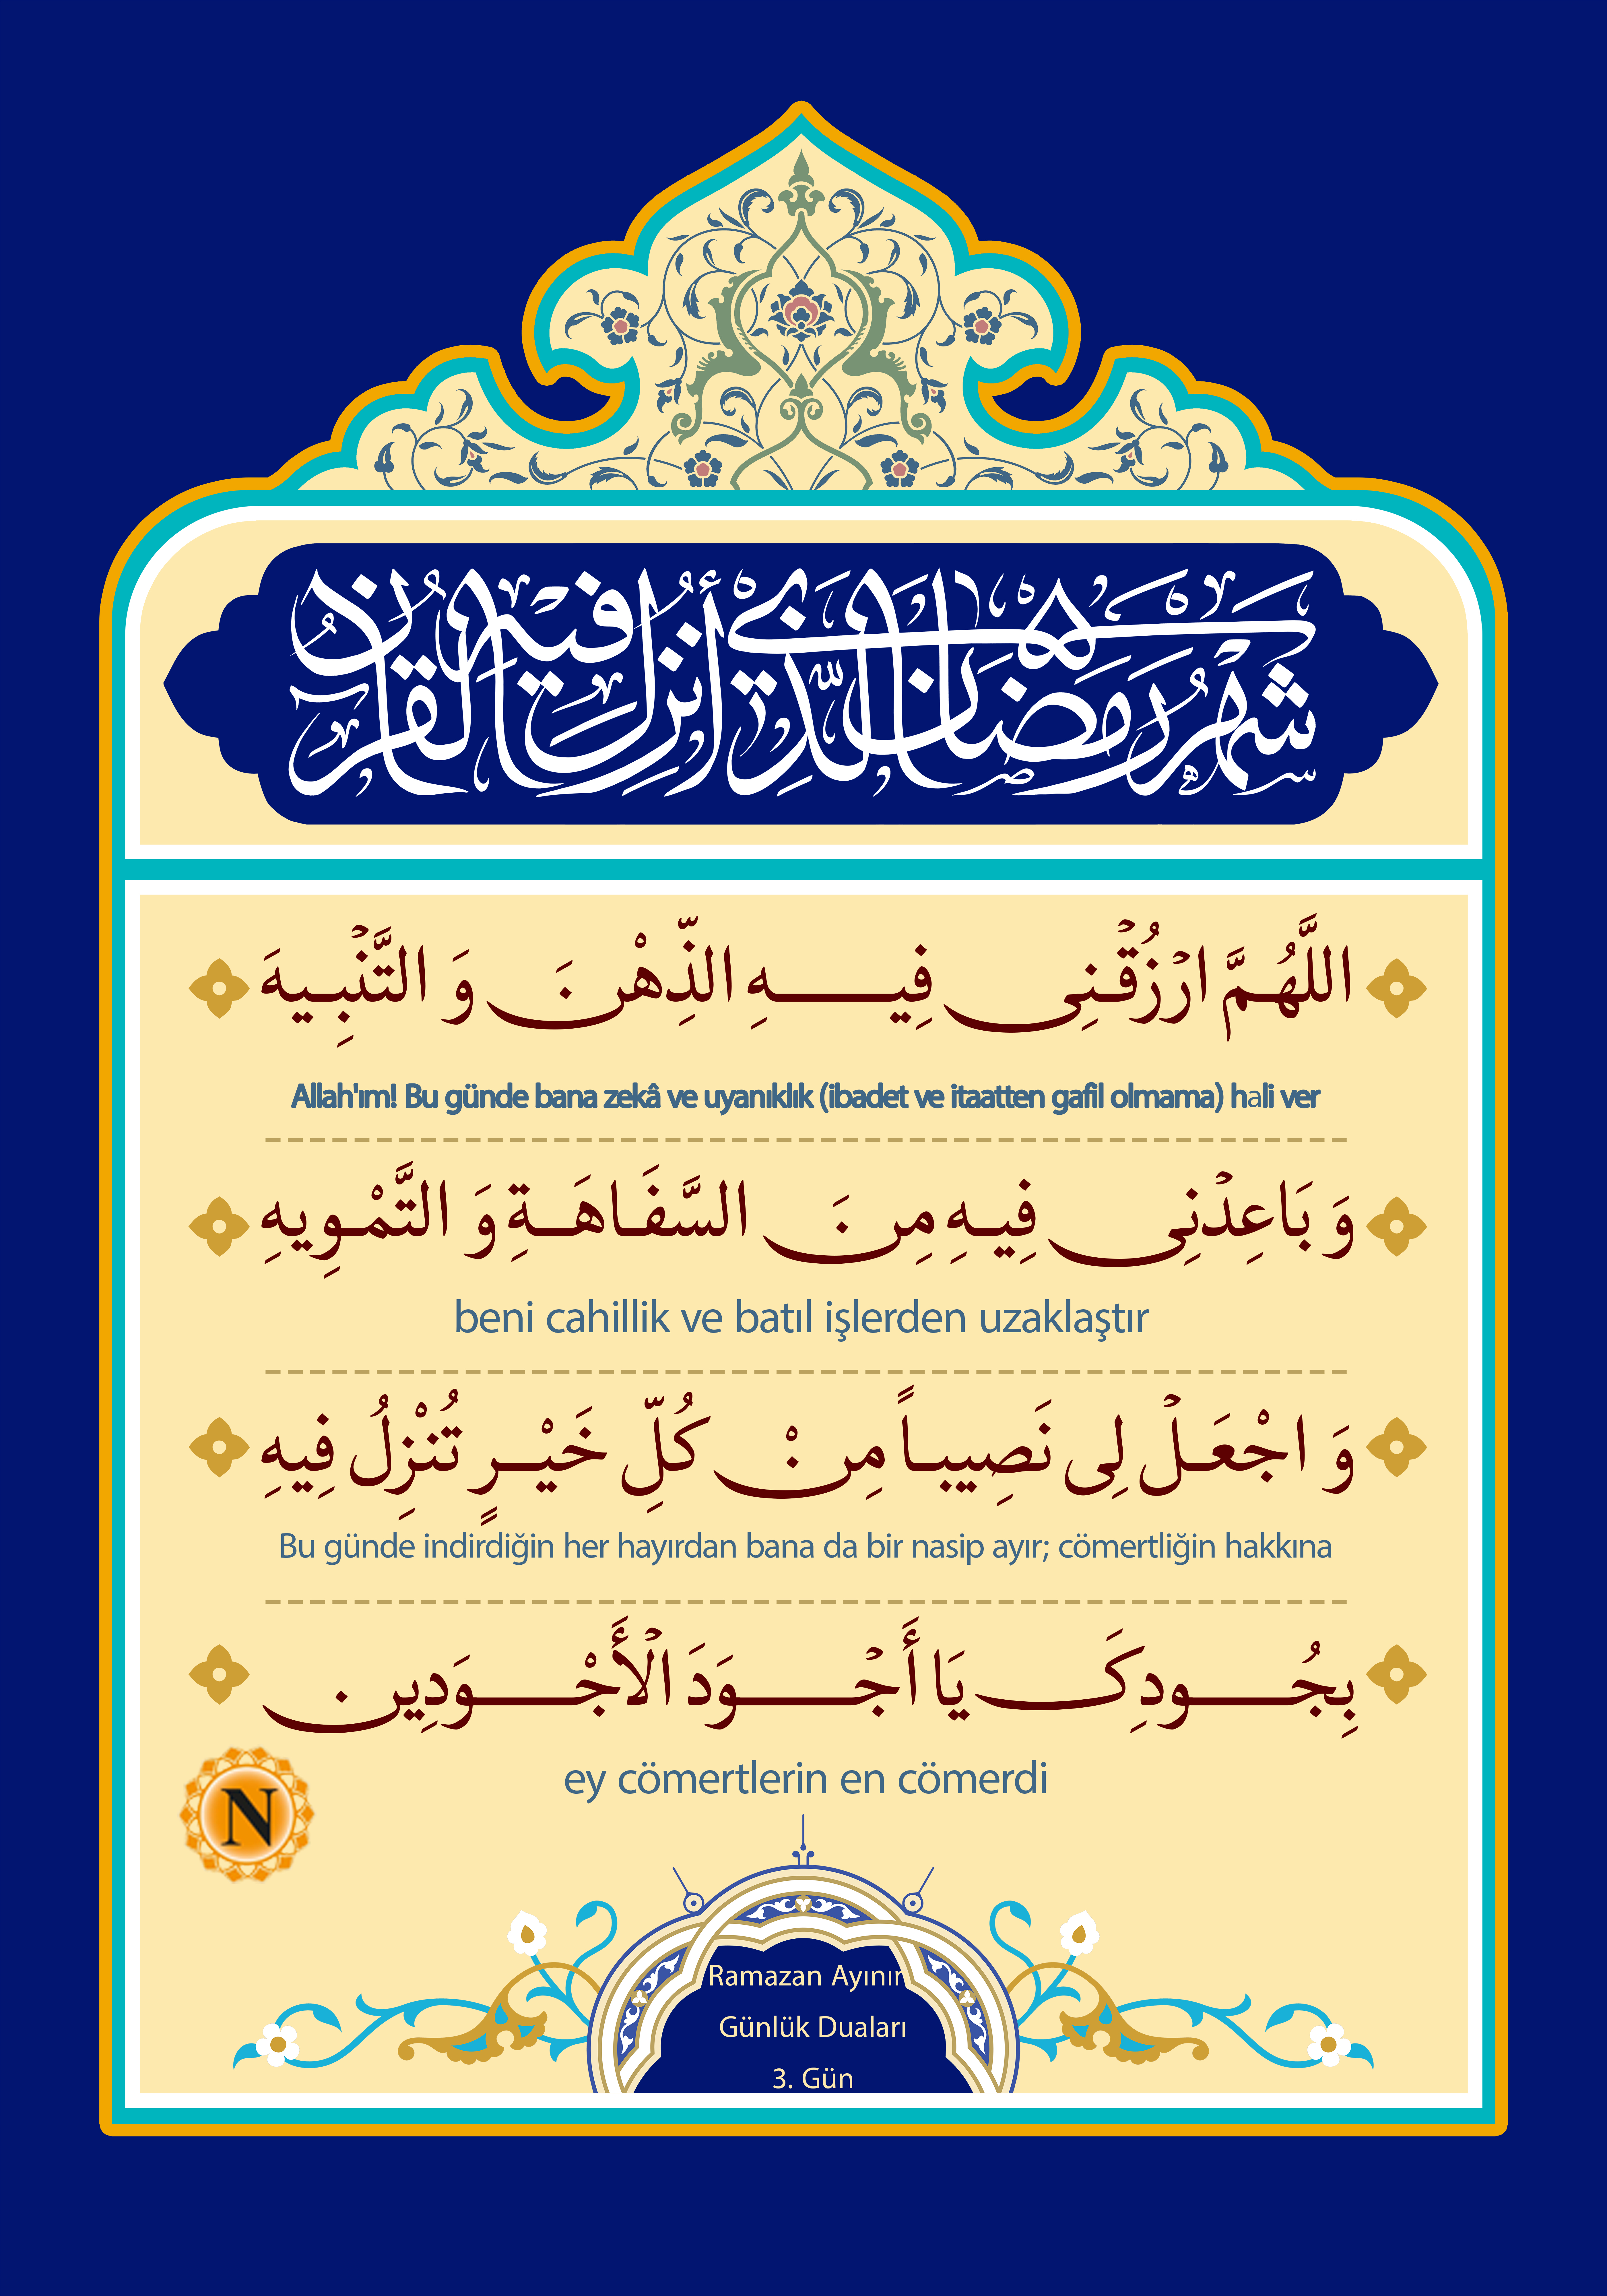 شهر رمضان الذي أنزل فيه القرآن
اللَّهُمَّ ارْزُقْنِی فِيهِ الذِّهْنَ وَ التَّنْبِيهَ
Allah'ım! Bu günde bana zekâ ve uyanıklık (ibadet ve itaatten gafil olmama) hali ver
وَ بَاعِدْنِی فِيهِ مِنَ السَّفَاهَةِ وَ التَّمْوِيهِ
beni cahillik ve batıl işlerden uzaklaştır
وَ اجْعَلْ لِی نَصِيباً مِنْ كُلِّ خَيْرٍ تُنْزِلُ فِيهِ
Bu günde indirdiğin her hayırdan bana da bir nasip ayır; cömertliğin hakkına
بِجُودِكَ يَا أَجْوَدَ الْأَجْوَدِين
ey cömertlerin en cömerdi
N
Ramazan Ayının
Günlük Duaları
3. Gün